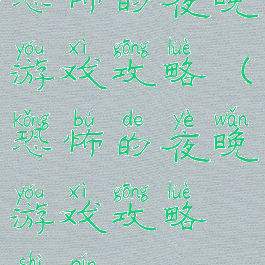 恐怖的夜晚
yóu xì gōng lüè
游戏攻略（
kǒng bù de yè wǎn
恐怖的夜晚
yóu xì gōng lüè
游戏攻略
shì pín